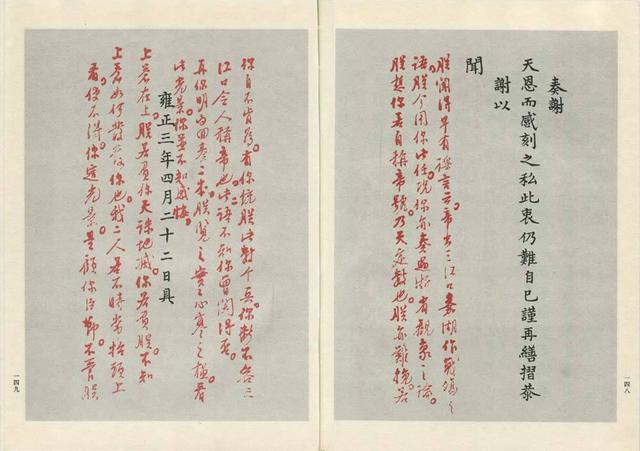 奏謝
天恩而感刻之私此衷仍難自已謹再繕摺恭
謝以
聞
朕聞得早有謠言云帝出三江口嘉湖作戰場之
語朕今用你此任況你亦奏過浙省觀象之論
朕想你若自稱帝號乃天定數也朕亦難挽若
一四八
你自不肯為有你統朕此數千兵你斷不容三
江口令人稱帝也此二語不知你曾聞得否
再你明白回奏二本朕覽之實實心寒之極看
此光景你並不知感悔
雍正三年四月二十二日具
上蒼在上朕若負你天誅地滅你若負朕不知
上蒼如何發落你也我二人若不時常抬頭上
看使不得你這光景是顧你臣節不管朕
一四九